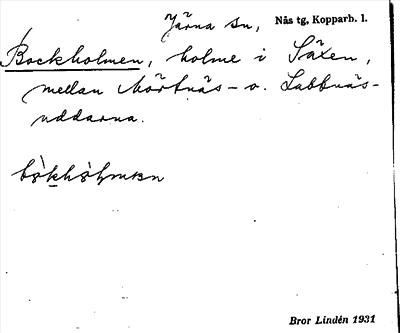 Järna sn, Nås tg, Kopparb. l.
Bockholmen, holme i Säxen,
mellan Mörtnäs- o. Labbnäs-
uddarna.
Bror Lindén 1931